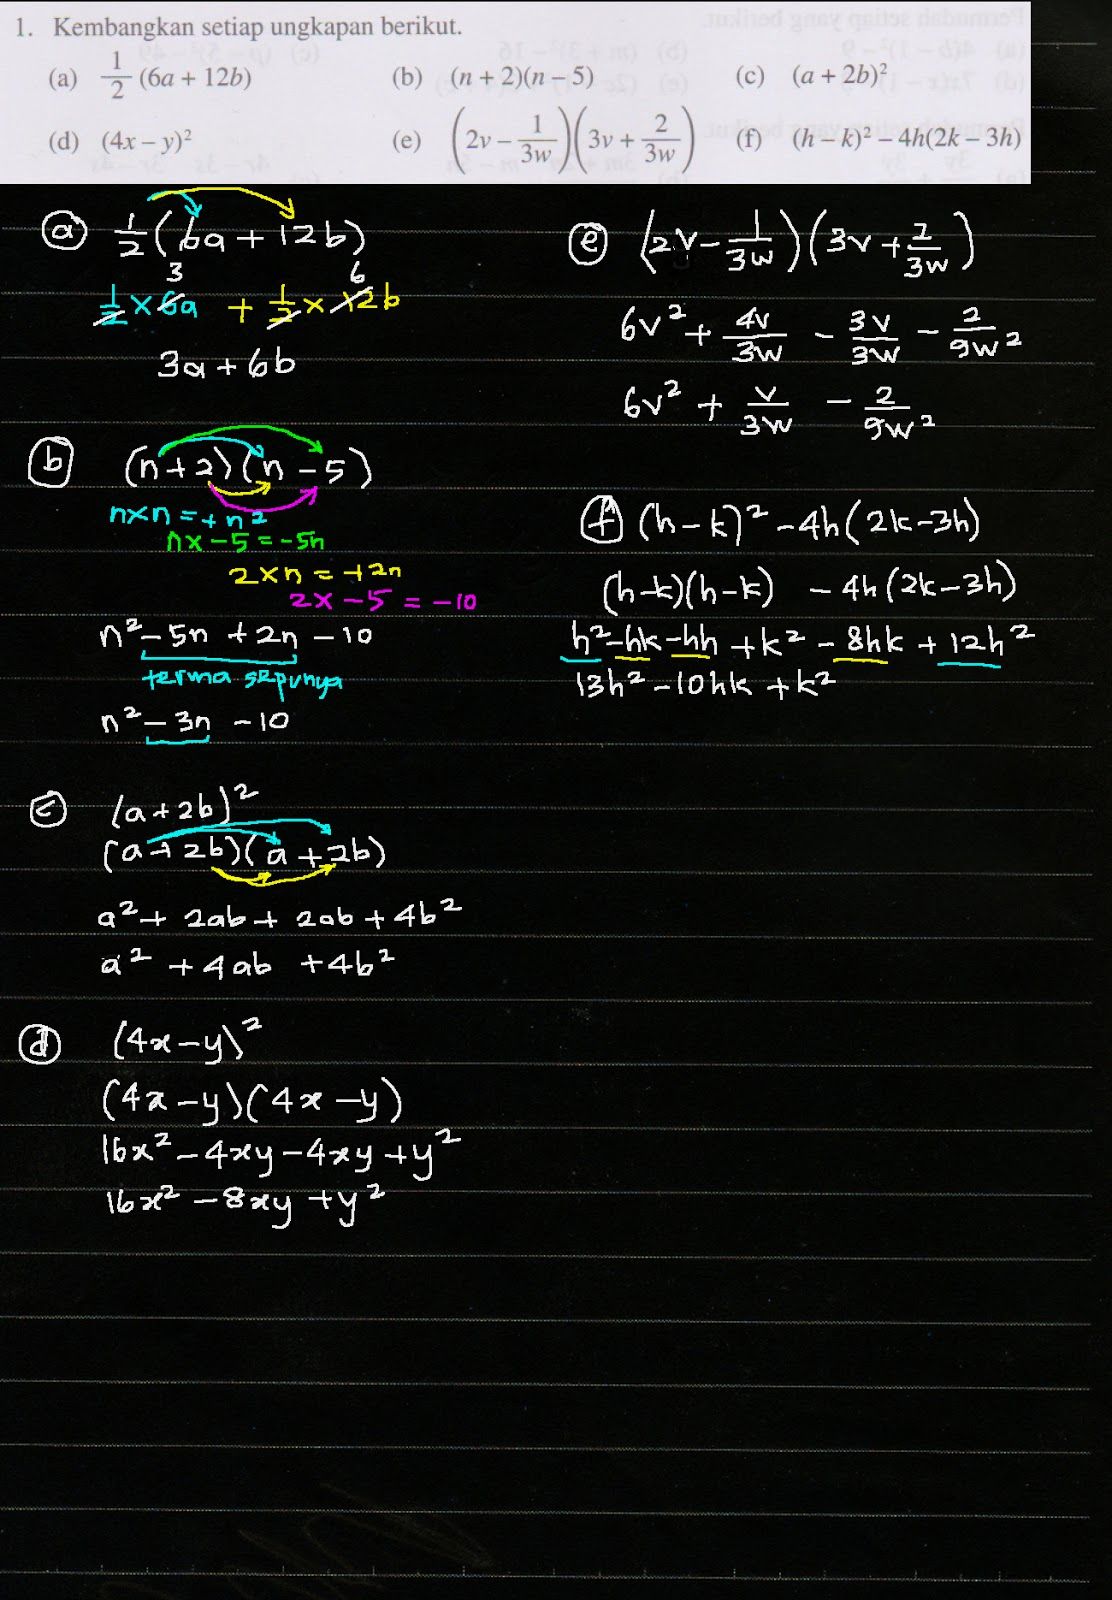 1. Kembangkan setiap ungkapan berikut.
(a) 1/2 (6a + 12b) (b) (n + 2)(n – 5) (c) (a + 2b)²
(d) (4x – y)² (e) (2v – 1/3w)(3v + 2/3w) (f) (h – k)² – 4h(2k – 3h)
(a) 1/2 (6a + 12b)
3 6
1/2 × 6a + 1/2 × 12b
3a + 6b
(b) (n + 2)(n – 5)
n×n = +n²
n× –5 = –5n
2×n = +2n
2× –5 = –10
n² – 5n + 2n – 10
terma sepunya
n² – 3n – 10
(c) (a + 2b)²
(a + 2b)(a + 2b)
a² + 2ab + 2ab + 4b²
a² + 4ab + 4b²
(d) (4x – y)²
(4x – y)(4x – y)
16x² – 4xy – 4xy + y²
16x² – 8xy + y²
(e) (2v – 1/3w)(3v + 2/3w)
6v² + 4v/3w – 3v/3w – 2/9w²
6v² + v/3w – 2/9w²
(f) (h – k)² – 4h(2k – 3h)
(h–k)(h–k) – 4h(2k – 3h)
h² – hk – hk + k² – 8hk + 12h²
13h² – 10hk + k²